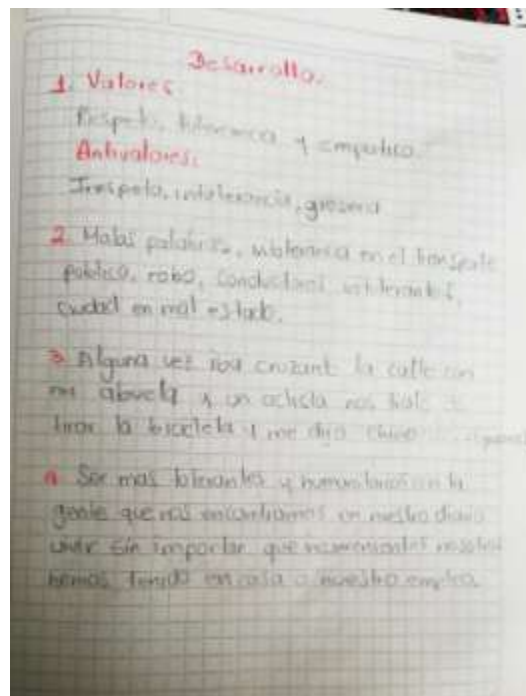 Desarrollo.
1. Valores
Respeto, tolerancia y empatica.
Antivalores:
Irrespeto, intolerancia, groseria
2. Malas palabras, intolerancia en el transporte
publico, robo, conductores intolerantes,
ciudad en mal estado.
3. Alguna vez iba cruzando la calle con
mi abuela y un ciclista nos
tirar la bicicleta y me dijo
4. Ser mas tolerantes y humanitarios con la
gente que nos encontramos en nuestro diario
vivir sin importar que nosotros
hemos tenido en casa o nuestro empleo.